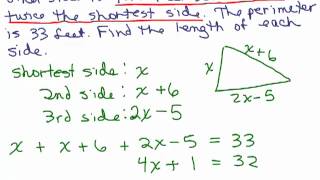 twice the shortest side. The perimeter
is 33 feet. Find the length of each
side.
shortest side: x
2nd side: x + 6
3rd side: 2x - 5
x
x + 6
2x - 5
x + x + 6 + 2x - 5 = 33
4x + 1 = 32